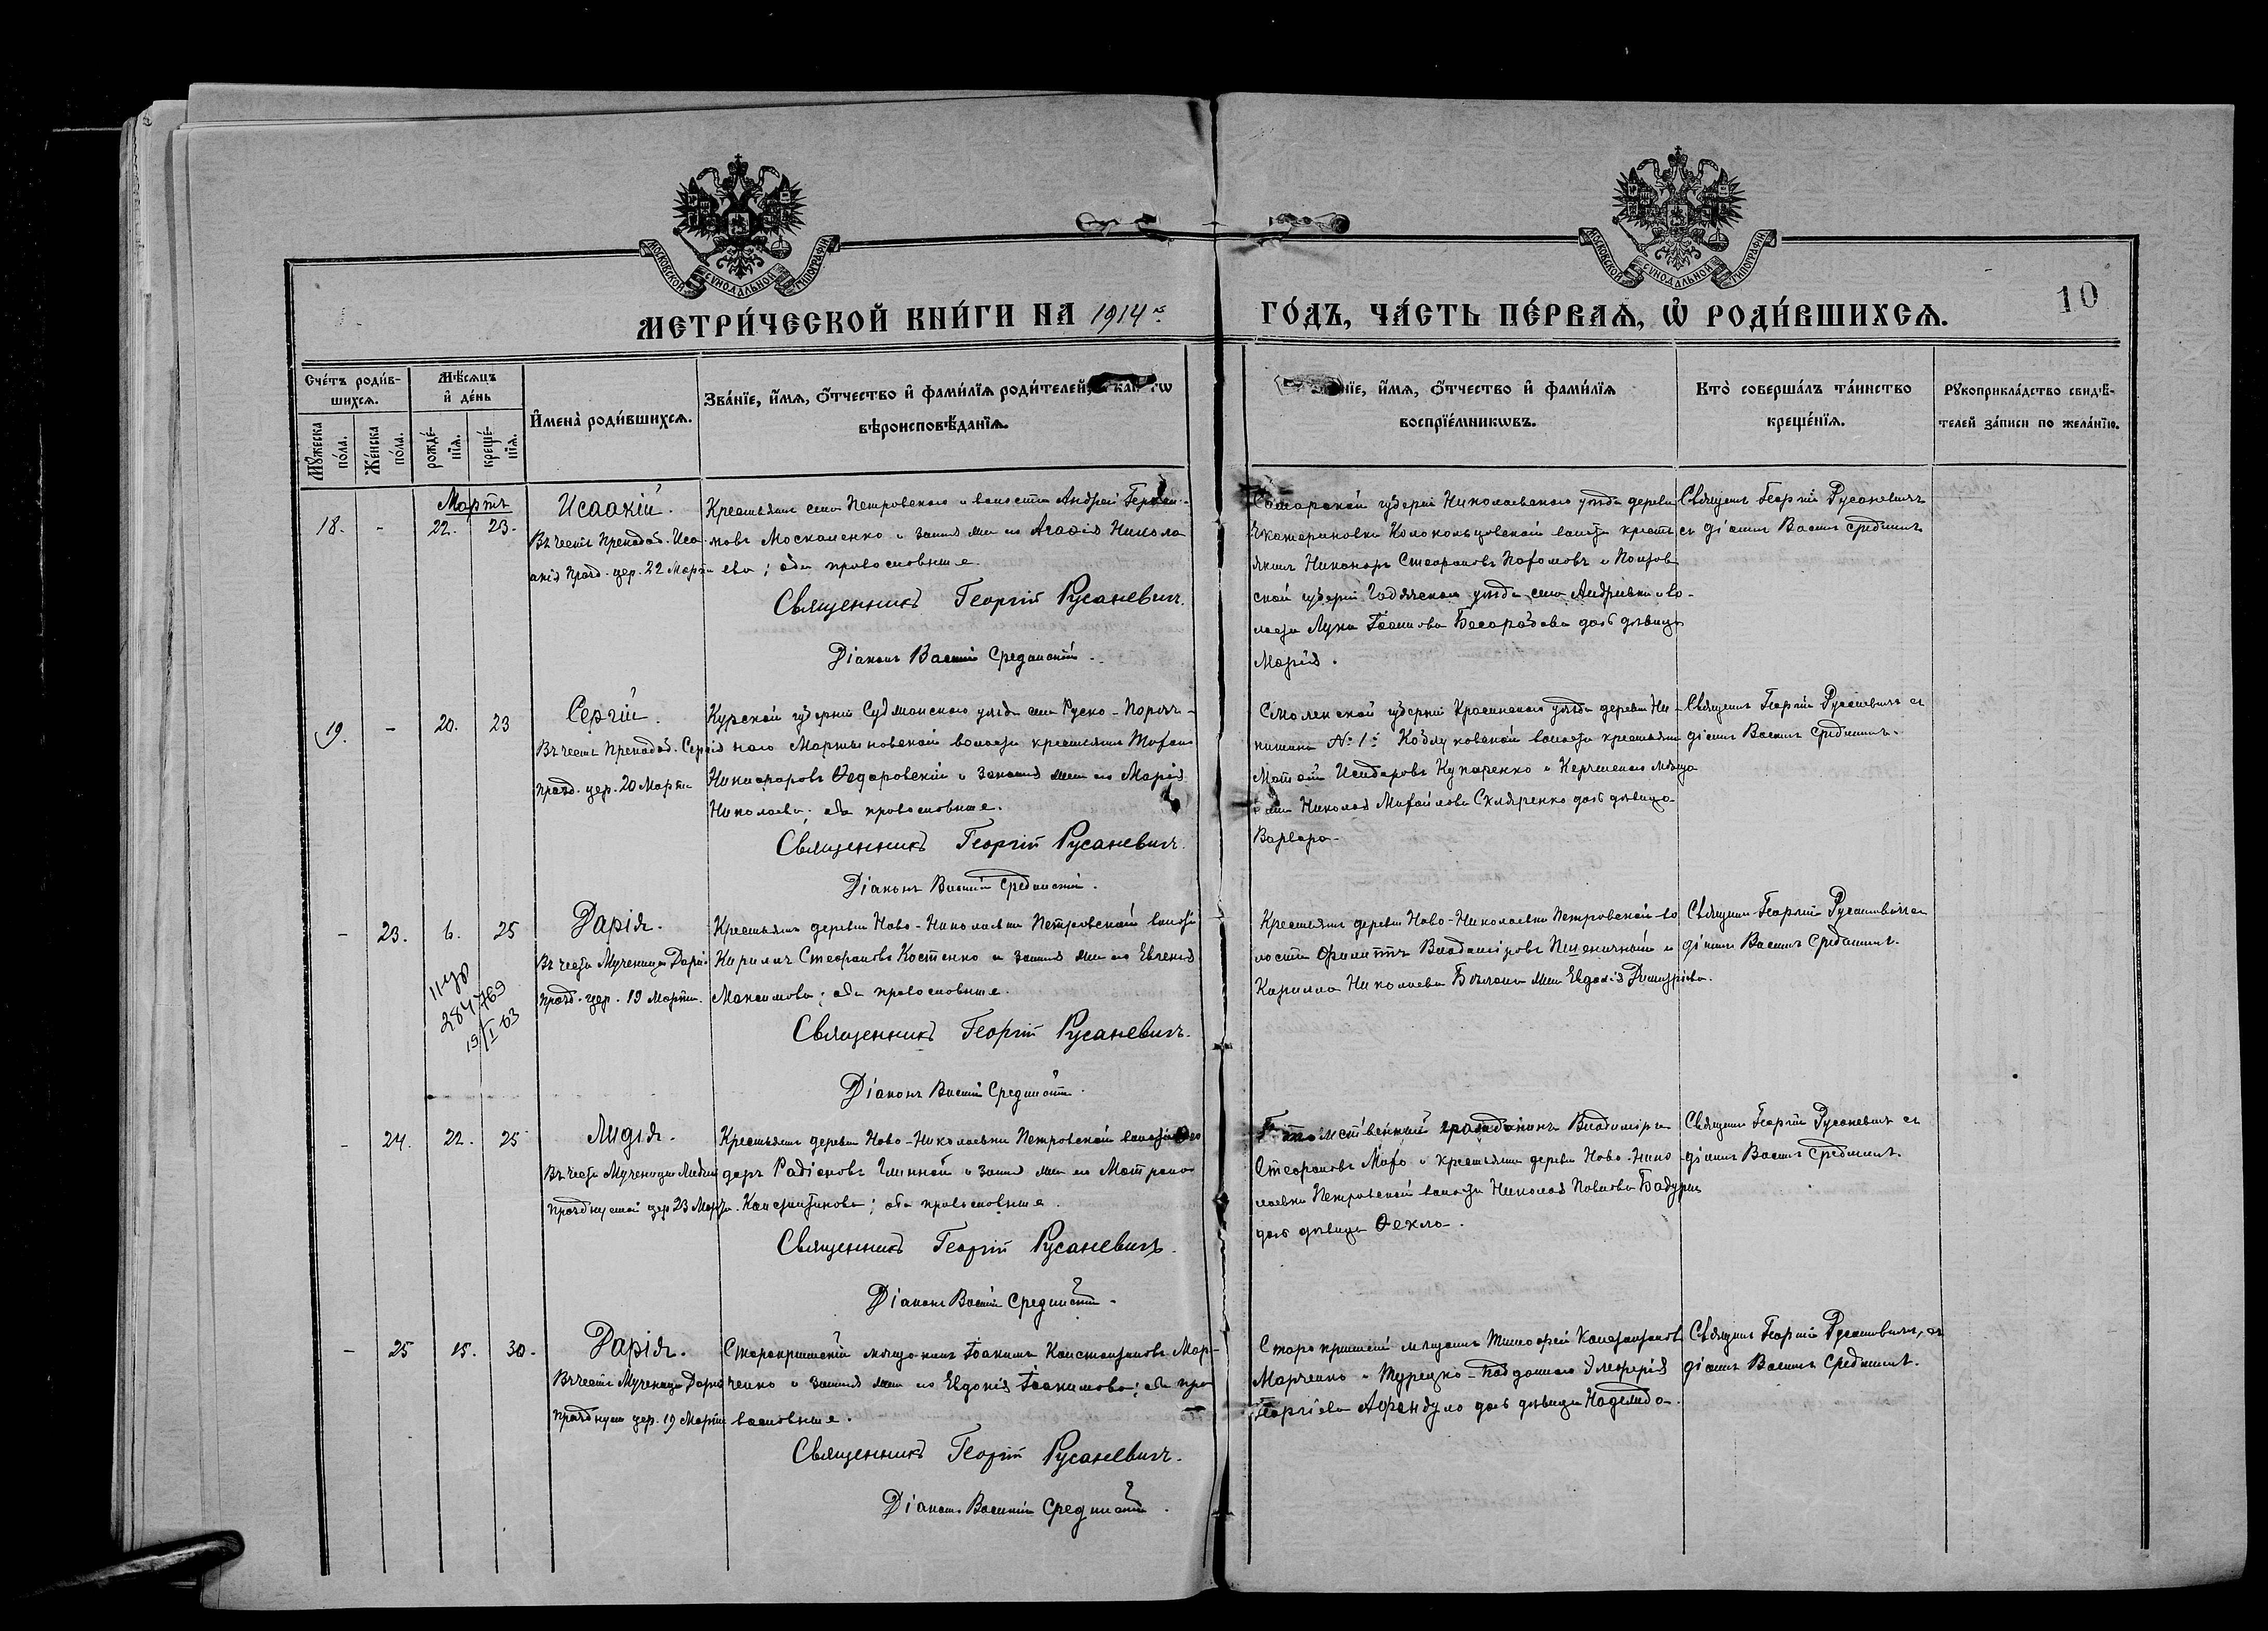 МОСКОВСКОЙ СѴНОДАЛЬНОЙ ТИПОГРАФІИ
МОСКОВСКОЙ СѴНОДАЛЬНОЙ ТИПОГРАФІИ
МЕТРИ́ЧЕСКОЙ КНИ́ГИ НА 1914 г.
ГО́ДЪ, ЧА́СТЬ ПЕ́РВАЯ, Ѡ РОДИ́ВШИХСЯ.
10
Сче́тъ роди́в-
шихся.
Мѣ́сяцъ
и де́нь
Мꙋжеска по́ла.
Же́нска по́ла.
рожде́-
нїя.
креще́-
нїя.
И҆мена̀ роди́вшихся.
Зва́нїе, и҆́мя, о҆́тчество и҆ фами́лїя роди́телей,
вѣроисповѣ́данїя.
и҆́мя, о҆́тчество и҆ фами́лїя
воспрїе́мникѡвъ.
Кто̀ соверша́лъ та́инство
креще́нїя.
Рꙋкоприкла́дство свидѣ́-
телей за́писи по жела́нїю.
Мартъ
18. - 22. 23.
Исаакій.
Въ честь Препадоб. Иса
акія празд. цер. 22 Марта
Крестьянинъ села Петровского и волости Андрей
новъ Москаленко и законная жена его Агафія Никола
ева; оба православные.
Священникъ Георгій Русаневичъ.
Діаконъ Василій
Самарской губерніи Николаевского уезда деревни
Екатериновки волости кресть
янинъ Никаноръ Стефановъ Пахомовъ и Полтав
ской губерніи Гадячского уезда села Андріевки и во-
лости Луки Іоаннова дочь девица
Марія.
Священникъ Георгій Русаневичъ
съ діакон. Васил.
19. - 20. 23
Сергій.
Въ честь Препадоб. Сергія
празд. цер. 20 Марта
Курской губерніи Суджанского уезда села Руско-Пореч-
ного Мартыновской волости крестьянинъ
Никифоровъ Федаровскій и законная жена его Марія
Николаева; оба православные.
Священникъ Георгій Русаневичъ.
Діаконъ Василій
Смоленской губерніи Красинского уезда деревни Ни-
китина № 1й волости крестьянинъ
Исидаровъ Купаренко и Керченского меща
Николая Михайлова Скляренко дочь девица
Варвара
Священникъ Георгій Русаневичъ съ
діакон. Васил.
- 23. 6. 25
Дарія.
Въ честь Мученицы Даріи
празд. цер. 19 Марта.
284769
19/I-63
Крестьянинъ деревни Ново-Николаевки Петровской волости
Кириллъ Стефановъ Костенко и законная жена его Евгенія
Максимова; оба православные.
Священникъ Георгій Русаневичъ.
Діаконъ Василій
Крестьянинъ деревни Ново-Николаевки Петровской во
лости Филиппъ Владиміровъ Пшеничный и
Кирилла Николаева жена Евдокія Димитріева.
Священникъ Георгій Русаневичъ съ
діакон. Васил.
- 24. 22. 25
Лидія.
Въ честь Мученицы Лидіи
празднуемой цер 23 Марта.
Крестьянинъ деревни Ново-Николаевки Петровской волости Фео
доръ Радіоновъ и законная жена его Матрона
Константинова; оба православные.
Священникъ Георгій Русаневичъ.
Діаконъ Василій
гражданинъ Владиміръ
Стефановъ и крестьянина деревни Ново-Нико
лаевки Петровской волости Николая Павлова
дочь девица Фекла.
Священникъ Георгій Русаневичъ съ
діакон. Васил.
- 25 15. 30.
Дарія.
Въ честь Мученицы Даріи
празднуем цер. 19 Марта
Старокрымскій мещанинъ Іоакимъ Константиновъ Мар-
ченко и законная жена его Евдокія Іоакимова; оба пра
вославные.
Священникъ Георгій Русаневичъ.
Діаконъ Василій
Старокрымскій мещанинъ Тимофей Константиновъ
Марченко и Турецко-подданного Элефтерія
Георгіева Афендуло дочь девица Надежда.
Священникъ Георгій Русаневичъ, съ
діакон. Васил.